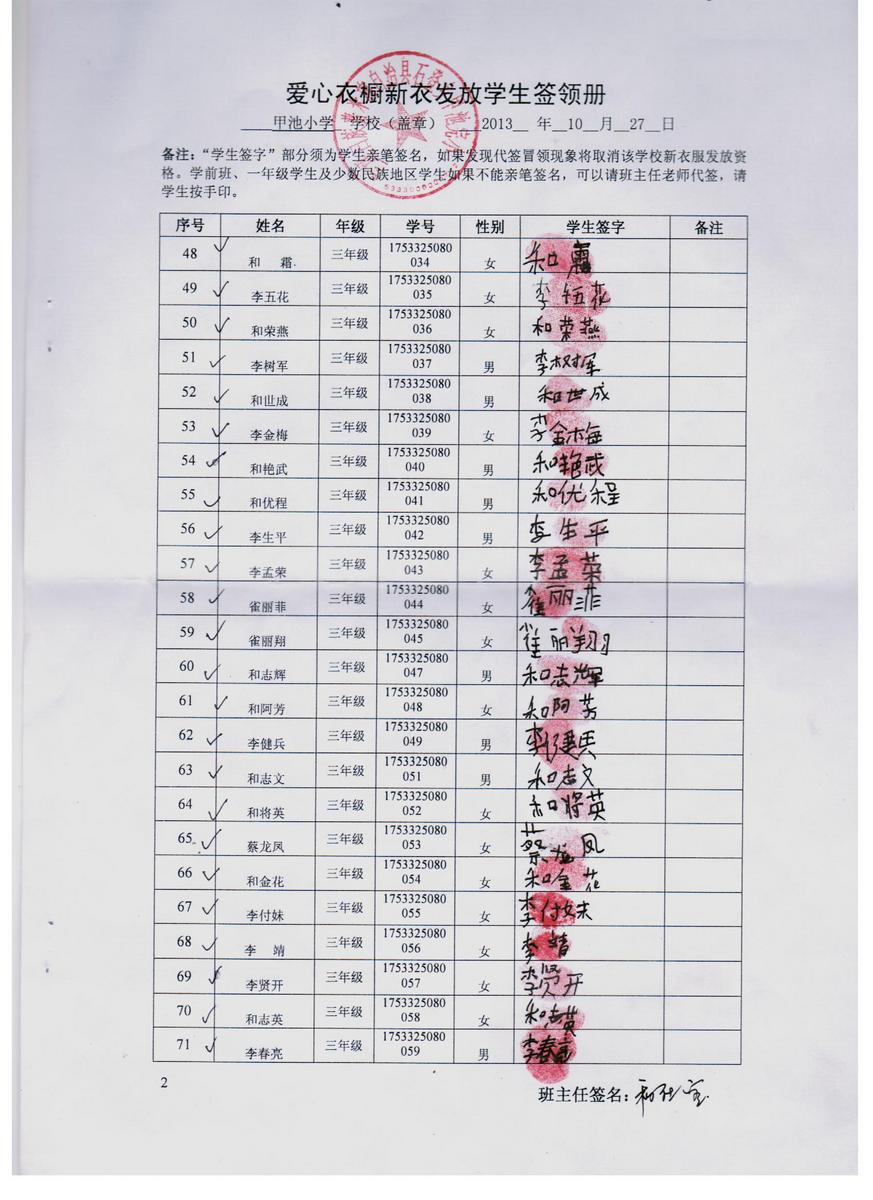 爱心衣橱新衣发放学生签领册
甲池小学 学校（盖章） 2013__ 年__10__月__27__日
备注：“学生签字”部分须为学生亲笔签名，如果发现代签冒领现象将取消该学校新衣服发放资
格。学前班、一年级学生及少数民族地区学生如果不能亲笔签名，可以请班主任老师代签，请
学生按手印。
序号 姓名 年级 学号 性别 学生签字 备注
48 和 霜 三年级 1753325080034 女 和霜
49 李五花 三年级 1753325080035 女 李伍花
50 和荣燕 三年级 1753325080036 女 和荣燕
51 李树军 三年级 1753325080037 男 李树军
52 和世成 三年级 1753325080038 男 和世成
53 李金梅 三年级 1753325080039 女 李金梅
54 和艳武 三年级 1753325080040 男 和艳武
55 和优程 三年级 1753325080041 男 和优程
56 李生平 三年级 1753325080042 男 李生平
57 李孟荣 三年级 1753325080043 女 李孟荣
58 雀丽菲 三年级 1753325080044 女 雀丽菲
59 雀丽翔 三年级 1753325080045 女 雀丽翔
60 和志辉 三年级 1753325080047 男 和志辉
61 和阿芳 三年级 1753325080048 女 和阿芳
62 李健兵 三年级 1753325080049 男 李健兵
63 和志文 三年级 1753325080051 男 和志文
64 和将英 三年级 1753325080052 女 和将英
65 蔡龙凤 三年级 1753325080053 女 蔡龙凤
66 和金花 三年级 1753325080054 女 和金花
67 李付妹 三年级 1753325080055 女 李付妹
68 李 靖 三年级 1753325080056 女 李靖
69 李贤开 三年级 1753325080057 女 李贤开
70 和志英 三年级 1753325080058 女 和志英
71 李春亮 三年级 1753325080059 男 李春亮
2
班主任签名：